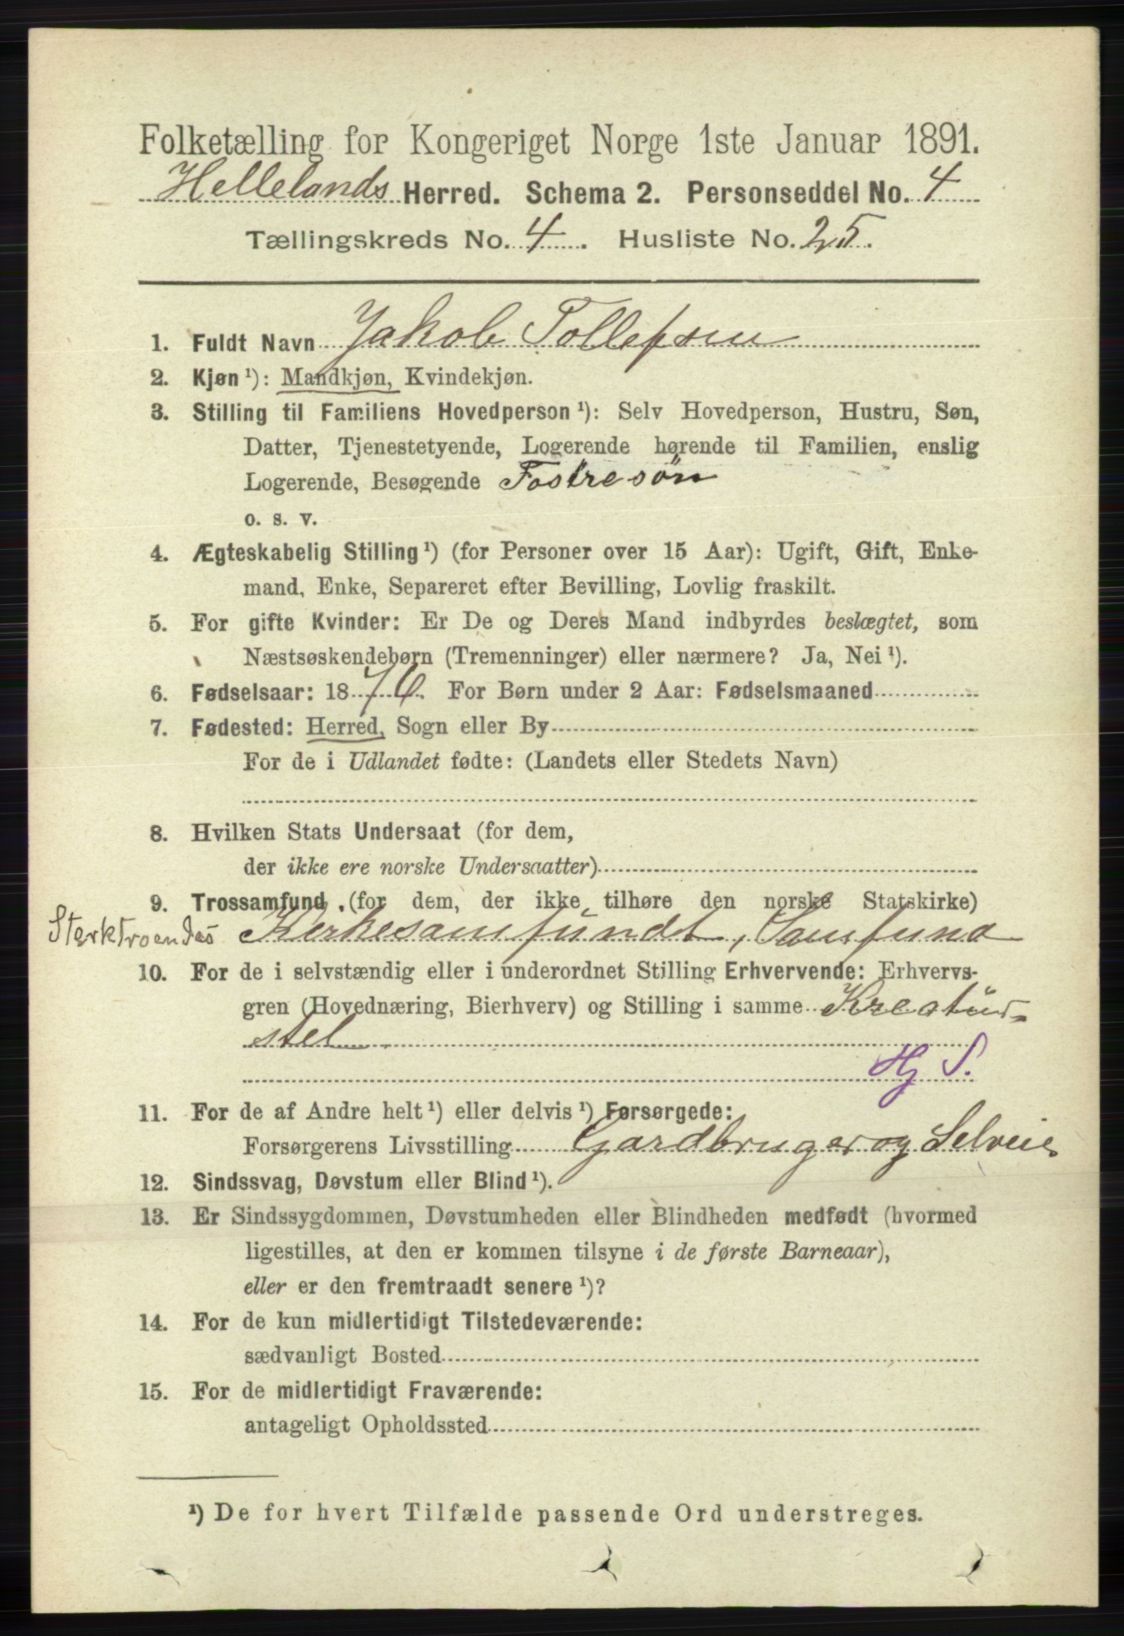 Folketælling for Kongeriget Norge 1ste Januar 1891.
Hellelands Herred. Schema 2. Personseddel No. 4
Tællingskreds No. 4. Husliste No. 25.
1. Fuldt Navn Jakob Tollefsen
2. Kjøn ¹): Mandkjøn, Kvindekjøn.
3. Stilling til Familiens Hovedperson ¹): Selv Hovedperson, Hustru, Søn,
Datter, Tjenestetyende, Logerende hørende til Familien, enslig
Logerende, Besøgende Fostresön
o. s. v.
4. Ægteskabelig Stilling ¹) (for Personer over 15 Aar): Ugift, Gift, Enke-
mand, Enke, Separeret efter Bevilling, Lovlig fraskilt.
5. For gifte Kvinder: Er De og Deres Mand indbyrdes beslægtet, som
Næstsøskendebørn (Tremenninger) eller nærmere? Ja, Nei ¹).
6. Fødselsaar: 1876. For Børn under 2 Aar: Fødselsmaaned
7. Fødested: Herred, Sogn eller By
For de i Udlandet fødte: (Landets eller Stedets Navn)
8. Hvilken Stats Undersaat (for dem,
der ikke ere norske Undersaatter)
9. Trossamfund (for dem, der ikke tilhøre den norske Statskirke)
Sterktroendes Kirkesamfundt, Samfund
10. For de i selvstændig eller i underordnet Stilling Erhvervende: Erhvervs-
gren (Hovednæring, Bierhverv) og Stilling i samme Kreatür-
stel
Hj S.
11. For de af Andre helt ¹) eller delvis ¹) Forsørgede:
Forsørgerens Livsstilling Gardbruger og Selveie
12. Sindssvag, Døvstum eller Blind ¹).
13. Er Sindssygdommen, Døvstumheden eller Blindheden medfødt (hvormed
ligestilles, at den er kommen tilsyne i de første Barneaar),
eller er den fremtraadt senere ¹)?
14. For de kun midlertidigt Tilstedeværende:
sædvanligt Bosted
15. For de midlertidigt Fraværende:
antageligt Opholdssted
¹) De for hvert Tilfælde passende Ord understreges.